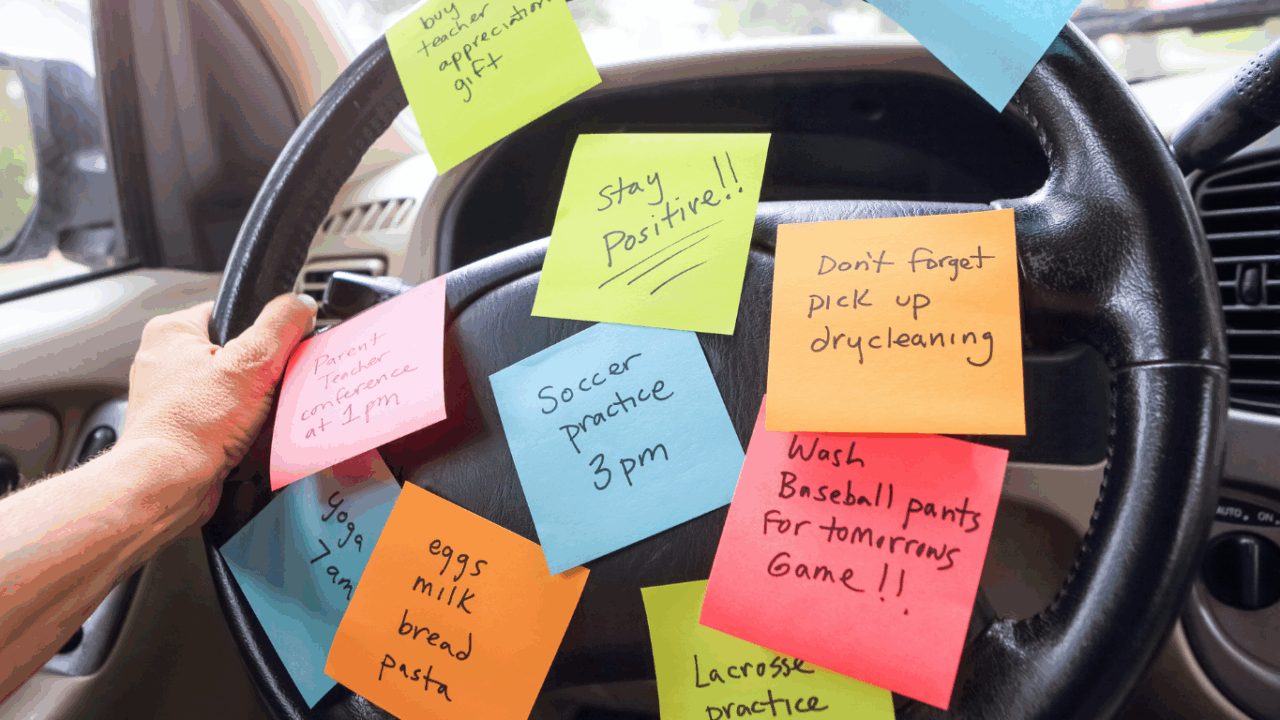 buy
teacher
appreciation
gift
Stay
Positive!!
Don't forget
pick up
drycleaning
Parent
Teacher
conference
at 1pm
Soccer
practice
3pm
Wash
Baseball pants
for tomorrows
Game!!
yoga
7am
eggs
milk
bread
pasta
Lacrosse
practice
AUTO. ON